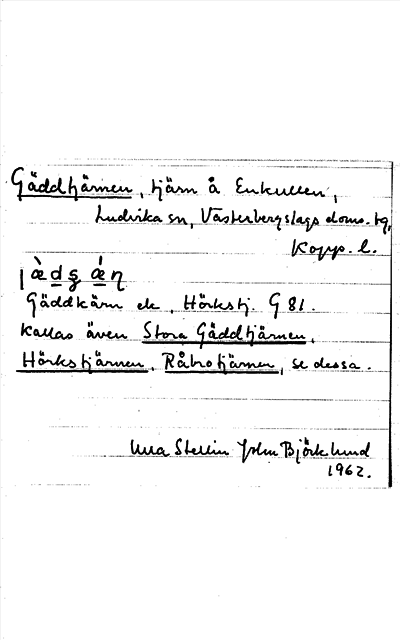 Gäddtjärnen, tjärn å Enkullen,
Ludvika sn, Västerbergslags doms. hd,
Kopp. l.
Gäddkärn ek, Hörkstj. G 81.
Kallas även Stora Gäddtjärnen,
Hörkstjärnen, Råbotjärnen, se dessa.
Ulla Stellin John Björklund
1962.